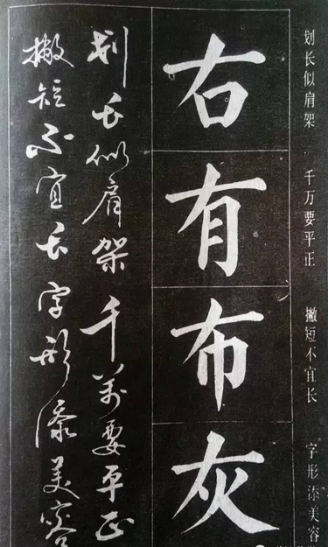 划长似肩架 千万要平正 撇短不宜长 字形添美容
右有布灰
划长似肩架千万要平正
撇短不宜长字形添美容